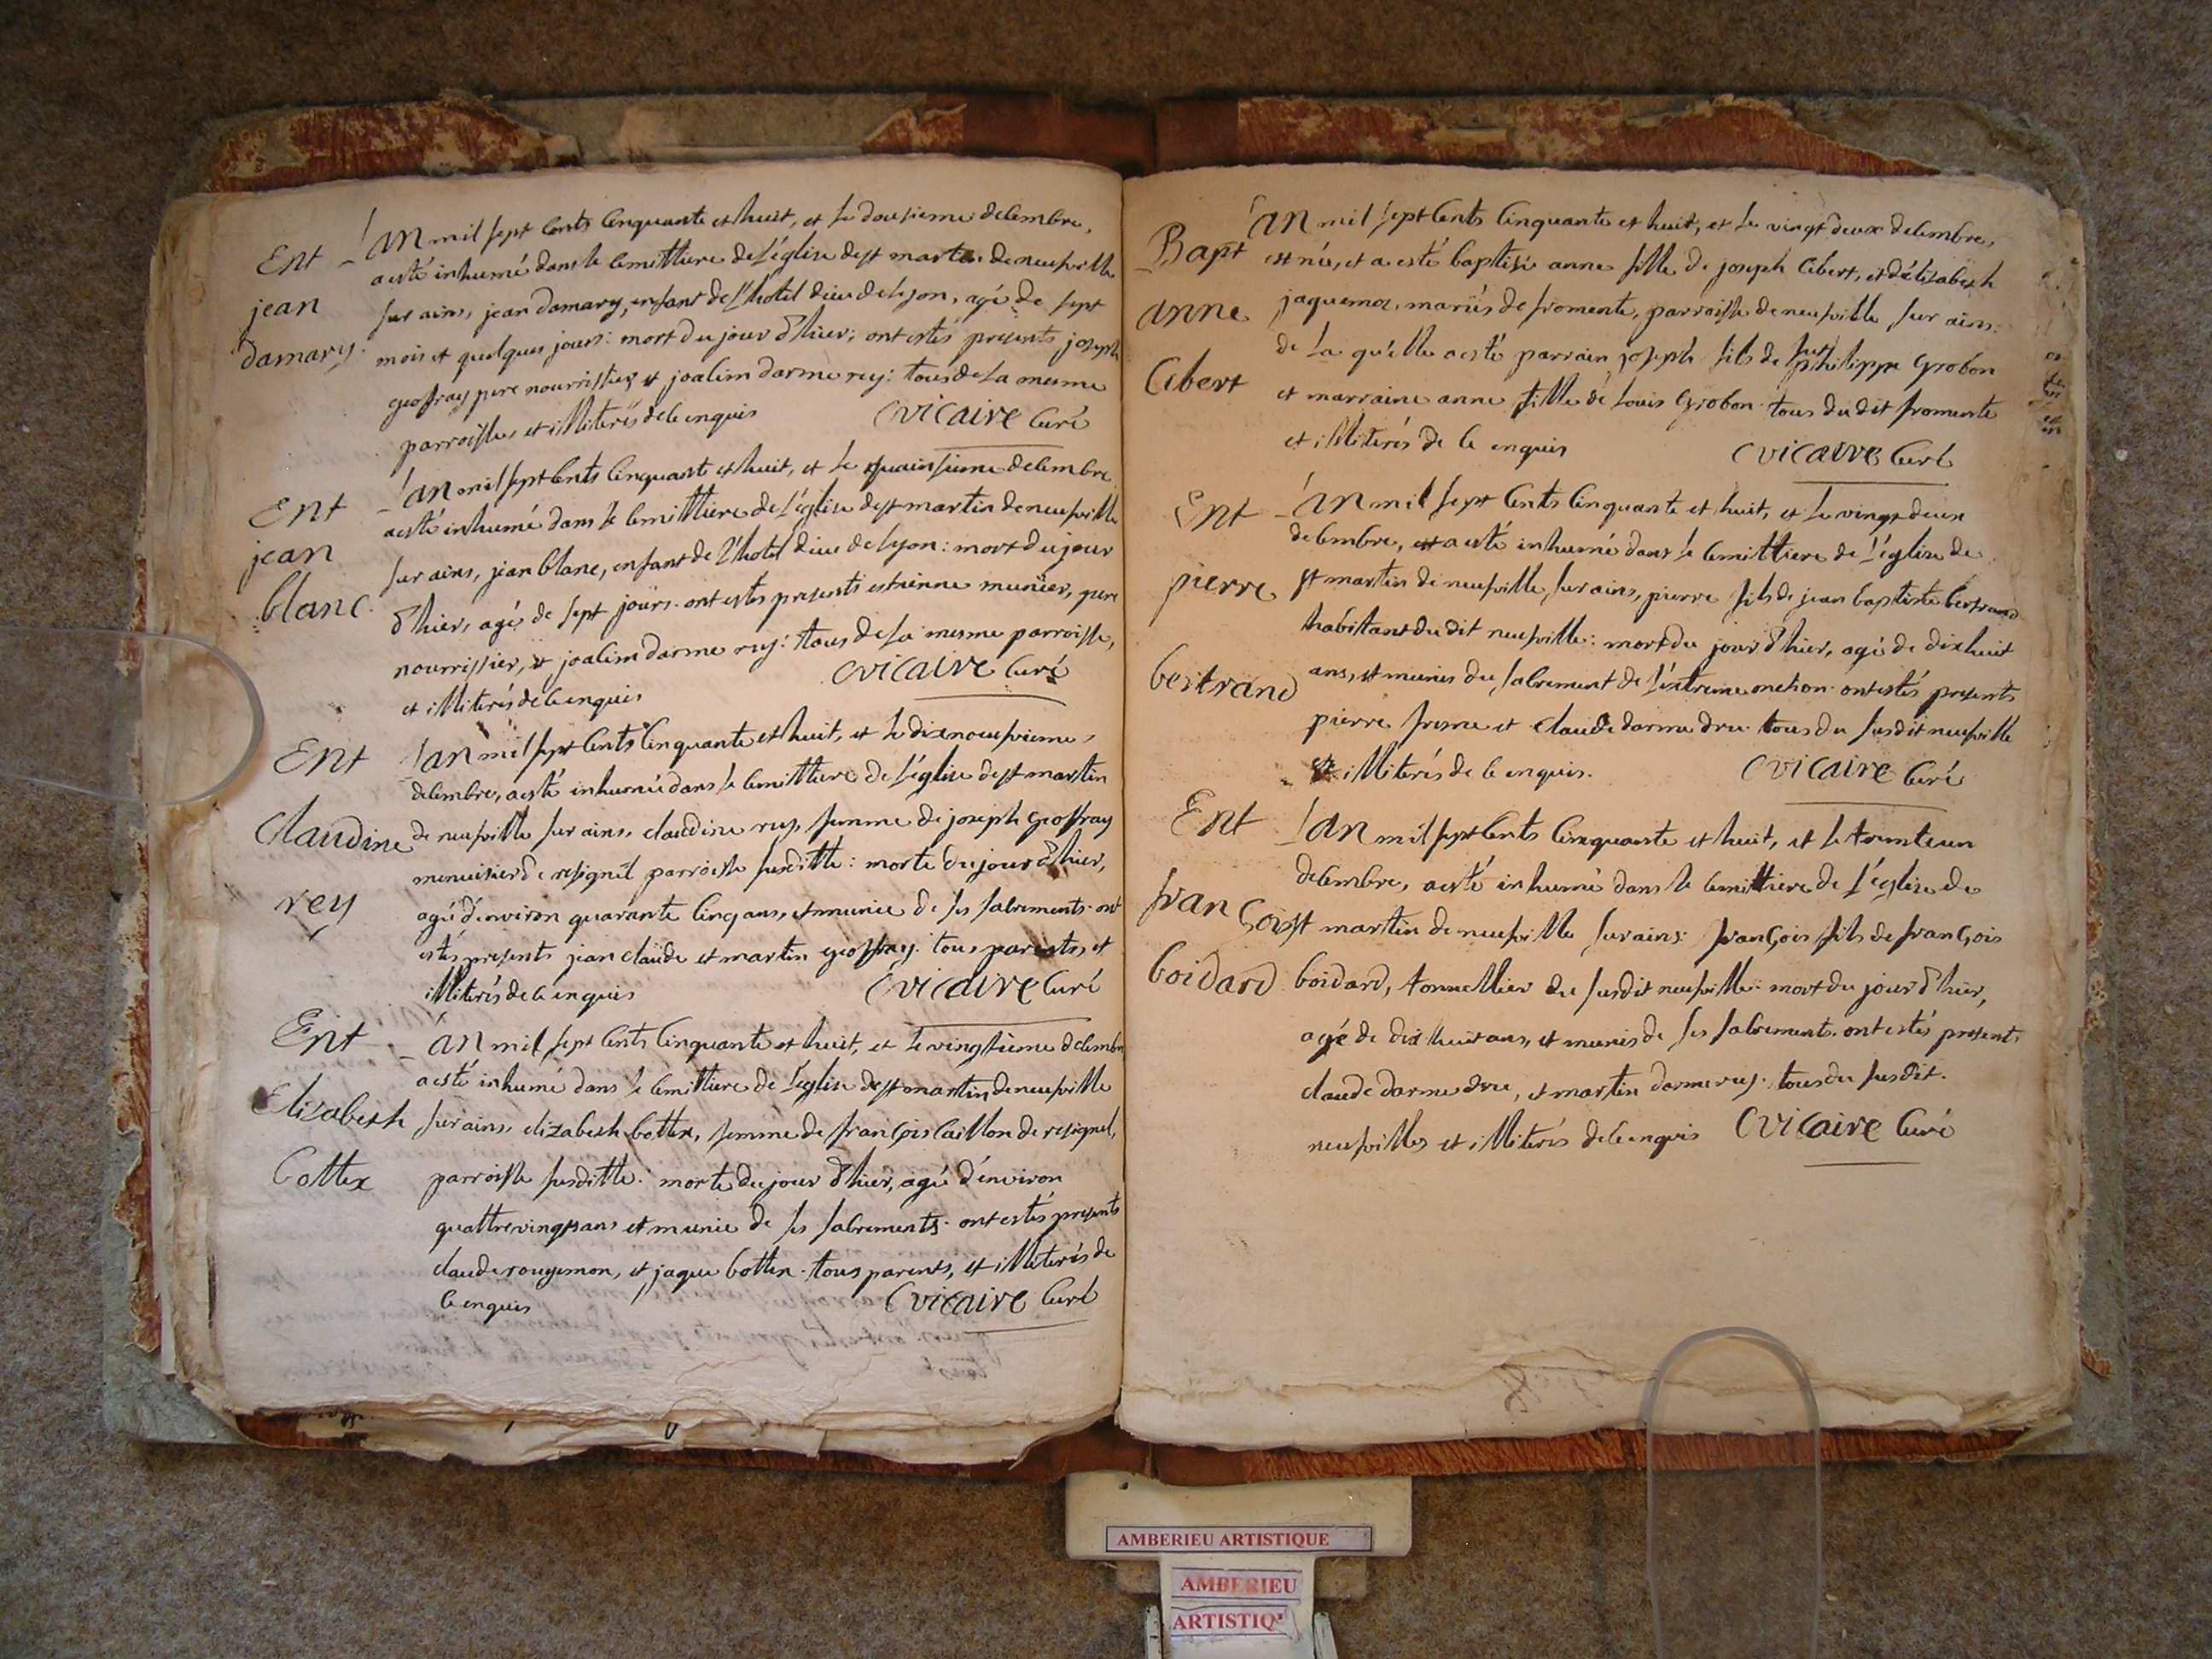 Ent
jean
damary.
L'an mil sept cents cinquante et huit, et le dousieme decembre,
a esté inhumé dans le cemittiere de l'église de st martin de neufville
sur ains, jean damary, enfant de l'hotel dieu de lyon, agé de sept
mois et quelques jours: mort du jour d'hier; ont estés presents joseph
geoffray pere nourrissier et joacim darme rey: tous de la mesme
parroisse, et illiterés de ce enquis cvicaire curé
Ent
jean
blanc.
L'an mil sept cents cinquante et huit, et le quainsieme decembre
a esté inhumé dans le cemittiere de l'église de st martin de neufville
sur ains, jean blanc, enfant de l'hotel dieu de lyon: mort du jour
d'hier, agé de sept jours. ont estés presents estienne munier, pere
nourrissier, et joacim darme rey: tous de la mesme parroisse,
et illiterés de ce enquis cvicaire curé
Ent
Claudine
rey
L'an mil sept cents cinquante et huit, et le dixneufvieme,
decembre, a esté inhumée dans le cemittiere de l'église de st martin
de neufville sur ains, claudine rey, femme de joseph geoffray
menuisier de resignel parroisse susditte: morte du jour d'hier,
agé d'environ quarante cinq ans, et munie de ses sacrements. ont
estés presents jean claude et martin geoffray. tous parents, et
illiterés de ce enquis cvicaire curé
Ent
Elizabeth
Cottex
L'an mil sept cents cinquante et huit, et le vingtieme decembre
a esté inhumé dans le cemittiere de l'église de st martin de neufville
sur ains, elizabeth cottex, femme de françois caillon de resignel,
parroisse susditte: morte du jour d'hier, agé d'environ
quattrevingt ans et munie de ses sacrements. ont estés presents
claude rougemon, et jaque cottex. tous parents, et illiterés de
ce enquis cvicaire curé
Bapt
anne
Cibert
L'an mil sept cents cinquante et huit, et le vingt deux decembre,
est née, et a esté baptisée anne fille de joseph Cibert, et d'élizabeth
jaquemoz, mariés de fromente, parroisse de neufville sur ains:
de la qu'elle a esté parrain joseph fils de feu philippe grobon
et marraine anne fille de louis grobon. tous du dit fromente
et illiterés de ce enquis cvicaire curé
Ent
pierre
bertrand
L'an mil sept cents cinquante et huit, et le vingt deux
decembre, a esté inhumé dans le cemittiere de l'église de
st martin de neufville sur ains, pierre fils de jean baptiste bertrand
habitant du dit neufville: mort du jour d'hier, agé de dixhuit
ans, et munis du sacrement de l'extreme onction. ont estés presents
pierre et claude darme dru. tous du susdit neufville
et illiterés de ce enquis. cvicaire curé
Ent
françois
boidard
L'an mil sept cents cinquante et huit, et le trente un
decembre, a esté inhumé dans le cemittiere de l'église de
st martin de neufville sur ains: françois fils de françois
boidard, tonnellier du susdit neufville: mort du jour d'hier,
agé de dix huit ans, et munis de ses sacrements. ont estés presents
claude darme dru, et martin darme rey. tous du susdit.
neufville, et illiterés de ce enquis cvicaire curé
AMBERIEU ARTISTIQUE
AMBERIEU
ARTISTIQ